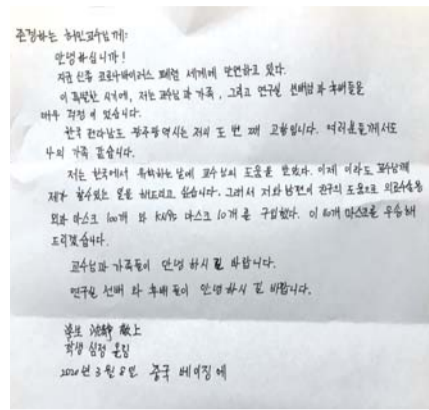 존경하는 허민교수님께:
안녕하십니까!
지금 신종 코로나바이러스 폐렴 세계에 만연하고 있다.
이 특별한 시기에, 저는 교수님과 가족, 그리고 연구실 선배님과 후배들을
매우 걱정이 있습니다.
한국 전라남도 광주광역시는 저의 두 번 째 고향입니다. 여러분들께서도
나의 가족 같습니다.
저는 한국에서 유학하는 날에 교수님의 도움을 받았다. 이제 이라도 교수님께
제가 할수있는 일을 해드리고 싶습니다. 그래서 저와 남편이 친구의 도움으로 의료수술용
외과 마스크 100개 와 KN95 마스크 10개 를 구입했다. 이 110개 마스크를 우송해
드리겠습니다.
교수님과 가족들이 안녕 하시 길 바랍니다.
연구실 선배 와 후배 들이 안녕 하시 길 바랍니다.
学生 沈静 敬上
학생 심정 올림
2020년 3월 8일 중국 베이징 에